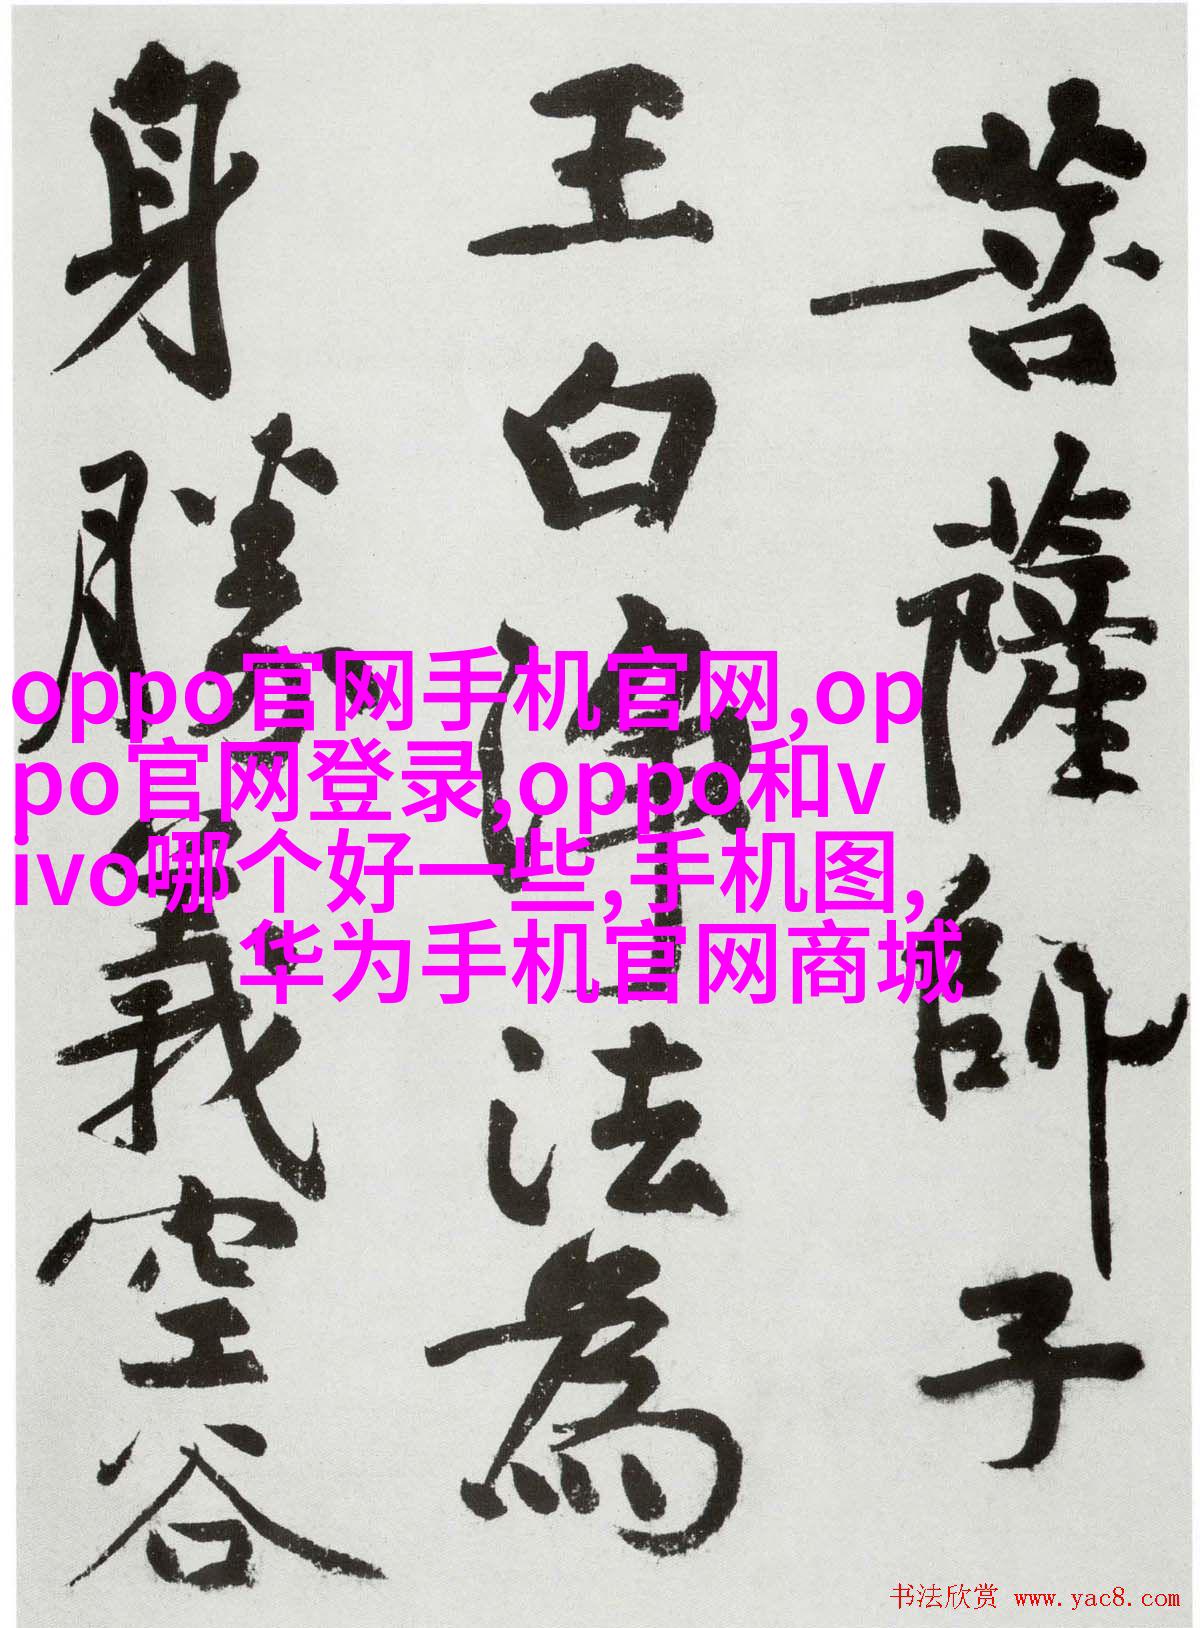 菩薩師子
王白淨法為
身勝義空谷
oppo官网手机官网,op
po官网登录,oppo和v
ivo哪个好一些,手机图,
华为手机官网商城
书法欣赏 www.yac8.com